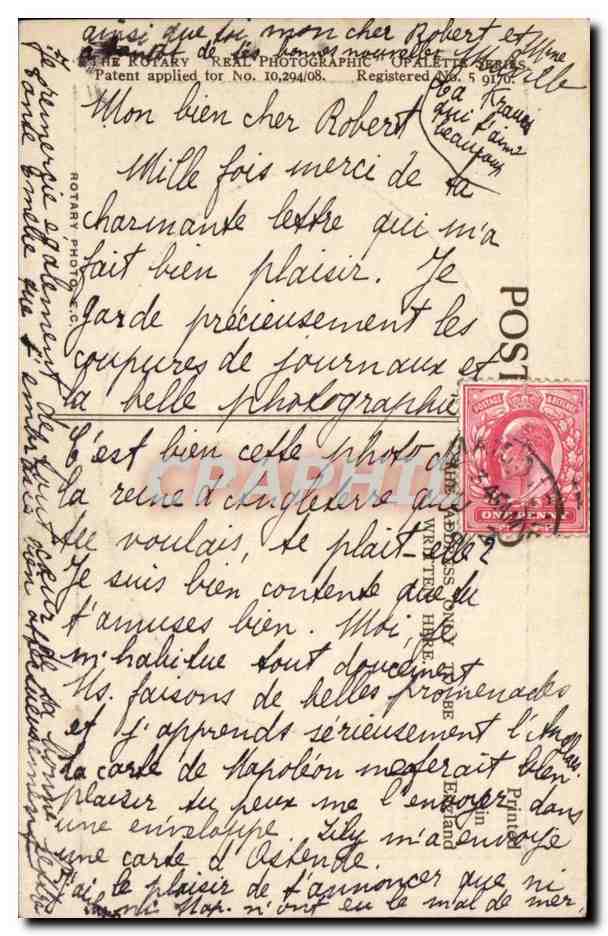 ainsi que toi, mon cher Robert et
a bientôt de tes bonnes nouvelles
THE ROTARY "REAL PHOTOGRAPHIC" OPALETTE SERIES.
Patent applied for No. 10,294/08. Registered No. 5 9170.
Mon bien cher Robert
Ta
qui t'aime
beaucoup
Mille fois merci de ta
charmante lettre qui m'a
fait bien plaisir. Je
garde précieusement les
coupures de journaux et
la belle photographie
C'est bien cette photo de
la reine d'Angleterre que
tu voulais, te plait-elle?
Je suis bien contente que tu
t'amuses bien. Moi, je
m'habitue tout doucement
Ns. faisons de belles promenades
et j'apprends sérieusement l'Anglais.
La carte de Napoléon me ferait bien
plaisir tu peux me l'envoyer dans
une enveloppe. Lily m'a envoyé
une carte d'Ostende.
J'ai le plaisir de t'annoncer que ni
ni Nap. n'ont eu le mal de mer
Je remercie également de tout cœur de sa bonne
tante que t'embrasse bien affectueusement
ROTARY PHOTO, E.C.
POST
THE ADDRESS ONLY TO BE
WRITTEN HERE.
Printed
in
England
POSTAGE & REVENUE
ONE PENNY
CPAPHIL